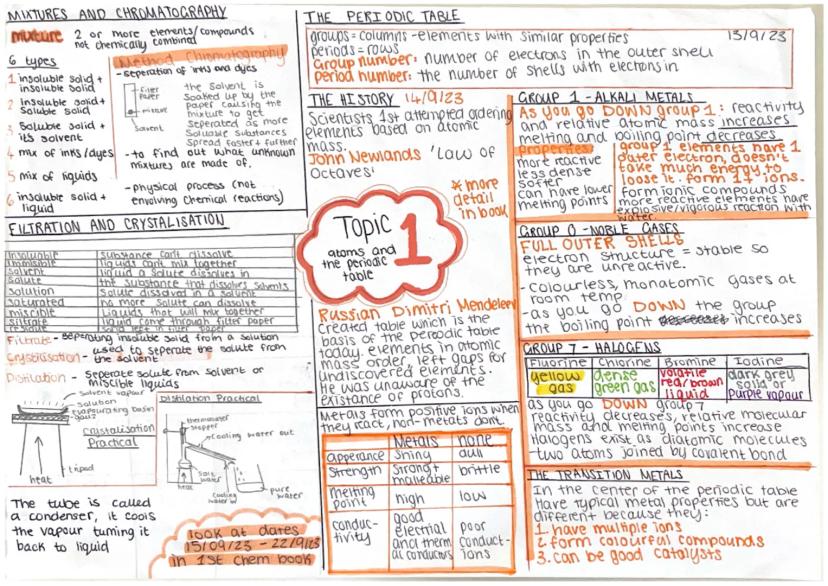 MIXTURES AND CHROMATOGRAPHY
mixture 2 or more elements/compounds
not chemically combined
6 types
1 insoluble solid +
insoluble solid
2 insoluble solid +
Soluble solid
3 Soluble solid +
its solvent
4 mix of inks/dyes
5 mix of liquids
6 insoluble solid +
liquid
Method Chromatography
- seperation of inks and dyes
filter
paper
mixture
solvent
the solvent is
soaked up by the
paper causing the
mixture to get
seperated as more
Soluable substances
Spread faster + further
- to find out what unknown
mixtures are made of.
- physical process (not
envolving Chemical reactions)
FILTRATION AND CRYSTALISATION
insoluable substance can't dissolve
immisible liquids can't mix together
solvent liquid a solute dissolves in
solute the substance that dissolves solvents
solution Solute dissolved in a solvent
saturated no more solute can dissolve
miscible Liquids that will mix together
filtrate liquid come through filter paper
residue solid left in filter paper
Filtrate - seperating insoluble solid from a solution
Crystilisation - used to seperate the solute from
the solvent
Distilation - Seperate solute from solvent or
miscible liquids
solvent vapour
solution
evapourating basin
gauze
Crystalisation
Practical
tripod
heat
Distilation Practical
thermometer
stopper
cooling water out
salt
water
heat
cooling
water in
pure
water
The tube is called
a condenser, it cools
the vapour turning it
back to liquid
look at dates
15/09/23 - 22/9/23
in 1st chem book
THE PERIODIC TABLE
groups = columns - elements with similar properties 13/9/23
periods = rows
Group number: number of electrons in the outer shell
Period number: the number of shells with electons in
THE HISTORY 14/9/23
Scientists 1st attempted ordering
elements based on atomic
mass.
John Newlands 'Law of
Octaves'
* more
detail
in book
Topic 1
atoms and
the periodic
table
Russian Dimitri Mendeleev
created table which is the
basis of the periodic table
today. elements in atomic
mass order, left gaps for
undiscovered elements.
He was unaware of the
existance of protons.
Metals form positive ions when
they react, non-metals dont
Metals none
apperance shiny dull
Strength strong + malleable brittle
melting point high low
conduc-tivity good electrial and therm al conductors poor conduct-ions
GROUP 1 - ALKALI METALS
As you go DOWN group 1: reactivity
and relative atomic mass increases
melting and boiling point decreases
properties
more reactive
less dense
softer
can have lower
melting points
group 1 elements have 1
outer electron, doesn't
take much energy to
lose it. form 1+ ions.
form ionic compounds
more reactive elements have
explosive/vigorous reaction with
water
GROUP 0 - NOBLE GASES
FULL OUTER SHELLS
electron structure = stable so
they are unreactive.
- colourless, monatomic gases at
room temp
- as you go DOWN the group
the boiling point increases
GROUP 7 - HALOGENS
Fluorine Chlorine Bromine Iodine
yellow gas dense green gas volatile red/brown liquid dark grey solid or purple vapour
as you go DOWN group 7
reactivity decreases, relative molecular
mass and melting points increase
Halogens exist as diatomic molecules
- two atoms joined by covalent bond
THE TRANSITION METALS
In the center of the periodic table
Have typical metal properties but are
different because they:
1. have multiple ions
2. form colourful compounds
3. can be good catalysts